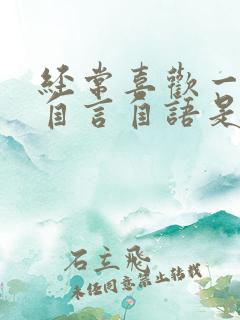 經常喜歡一
自言自語是
石立飛
未經同意禁止轉載